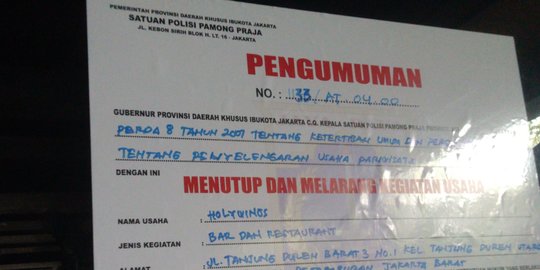 PEMERINTAH PROVINSI DAERAH KHUSUS IBUKOTA JAKARTA
SATUAN POLISI PAMONG PRAJA
JL. KEBON SIRIH BLOK H. LT. 16 - JAKARTA
PENGUMUMAN
NO. : 33/AT 04.00
GUBERNUR PROVINSI DAERAH KHUSUS IBUKOTA JAKARTA C.Q. KEPALA SATUAN POLISI PAMONG PRAJA
PERDA 8 TAHUN 2007 TENTANG KETERTIBAN UMUM DAN
TENTANG PENYELENGARAN USAHA PARIWISATA
DENGAN INI
MENUTUP DAN MELARANG KEGIATAN USAHA
NAMA USAHA : HOLYWINGS
JENIS KEGIATAN : BAR DAN RESTAURANT
ALAMAT : JL. TANJUNG DUREN BARAT 3 NO. 1 KEL TANJUNG DUREN UTARA
JAKARTA BARAT